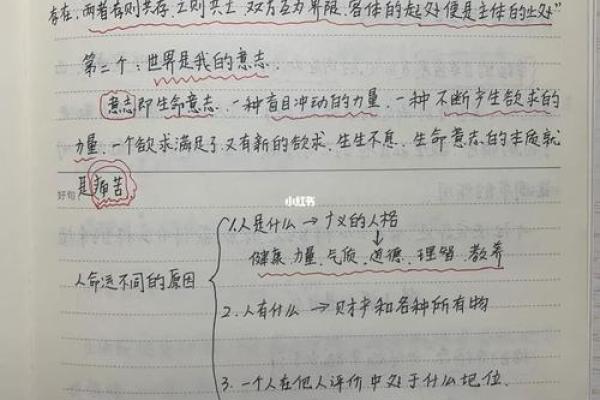 存在，两者存则共存，亡则共亡，双方互为界限，客体的起处便是主体的止处”
第二个：世界是我的意志．
意志即生命意志．一种盲目冲动的力量．一种不断产生欲求的
力量．一个欲求满足了又有新的欲求．生生不息．生命意志的本质就
好句 是痛苦
小红书
1.人是什么 → 广义的人格
↓
健康．力量．气质．道德．理智．教养
人命运不同的原因
2.人有什么 → 财产和各种所有物
3.一个人在他人评价中处于什么地位．